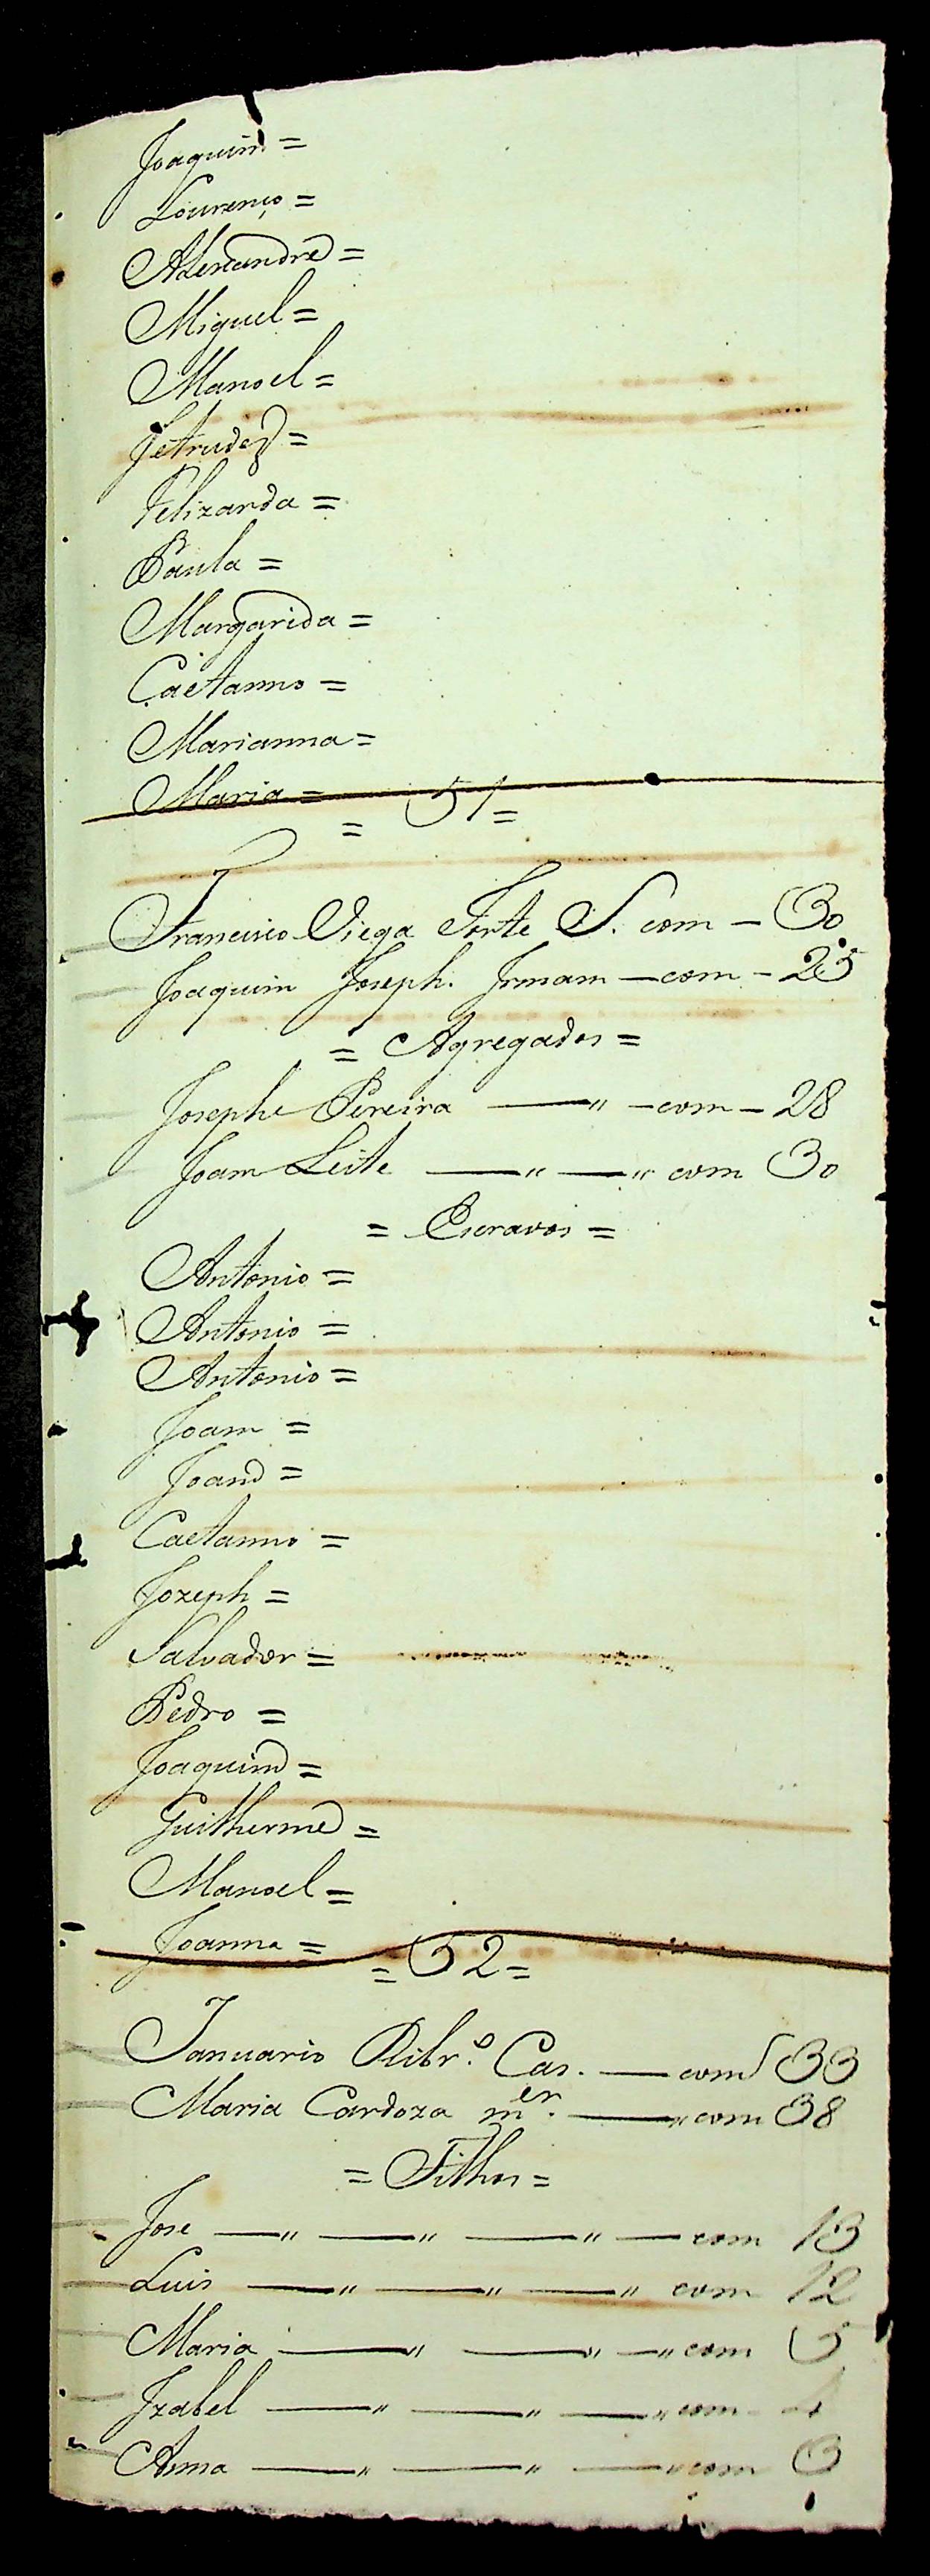 Joaquim =
Lourenço =
Alexandre =
Miguel =
Manoel =
Jetrudes =
Felizarda =
Paula =
Margarida =
Caetanno =
Marianna =
Maria =
= 51 =
Francisco Viega Forte S. com — 30
Joaquim Joseph. Irmam — com — 25
= Agregados =
Josephe Pereira — " — com — 28
Joam Leite — " — " com 30
= Escravos =
Antonio =
Antonio =
Antonio =
Joam =
Joam =
Caetanno =
Jozeph =
Salvador =
Pedro =
Joaquim =
Guilherme =
Manoel =
Joanna =
= 52 =
Januario Ribr.º Cas. — com 33
Maria Cardoza m.er — " com 38
= Filhos =
Jose — " — " — " — com 13
Luis — " — " — " com 12
Maria — " — " — " com 5
Izabel — " — " — " com 4
Anna — " — " — " com 3